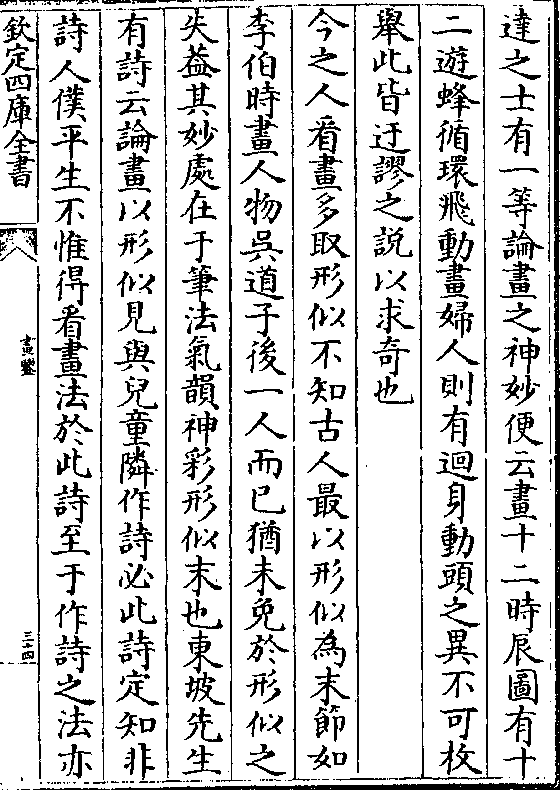 達之士有一等論畫之神妙便云畫十二時辰圖有十
二遊蜂循環飛動畫婦人則有迴身動頭之異不可枚
舉此皆迂謬之説以求奇也
今之人看畫多取形似不知古人最以形似為末節如
李伯時畫人物吳道子後一人而已猶未免於形似之
失葢其妙處在于筆法氣韻神彩形似末也東坡先生
有詩云論畫以形似見與兒童隣作詩必此詩定知非
詩人僕平生不惟得看畫法於此詩至于作詩之法亦
欽定四庫全書
畫鑒
三十四